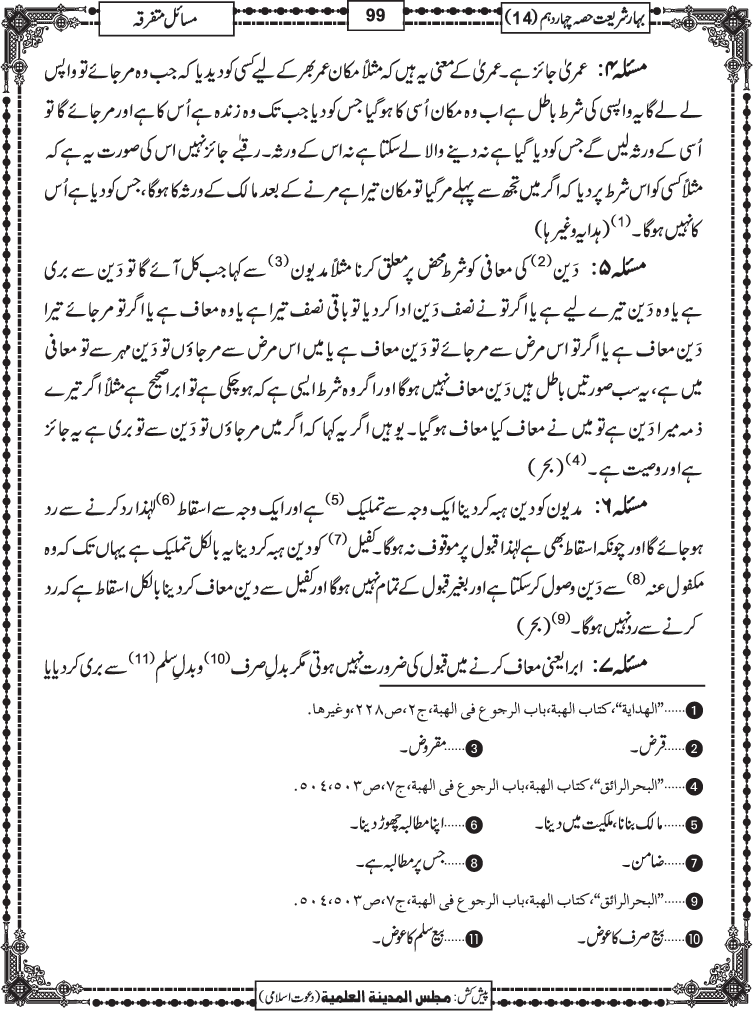 بہارِ شریعت حصہ چہاردہم (14)
99
مسائل متفرقہ
مسئلہ ۴: عمریٰ جائز ہے۔ عمریٰ کے معنی یہ ہیں کہ مثلاً مکان عمر بھر کے لیے کسی کو دیدیا کہ جب وہ مرجائے تو واپس
لے لے گا یہ واپسی کی شرط باطل ہے اب وہ مکان اُسی کا ہوگیا جس کو دیا جب تک وہ زندہ ہے اُس کا ہے اور مرجائے گا تو
اُسی کے ورثہ لیں گے جس کو دیا گیا ہے نہ دینے والا لے سکتا ہے نہ اس کے ورثہ۔ رقبیٰ جائز نہیں اس کی صورت یہ ہے کہ
مثلاً کسی کو اس شرط پر دیا کہ اگر میں تجھ سے پہلے مرگیا تو مکان تیرا ہے مرنے کے بعد مالک کے ورثہ کا ہوگا، جس کو دیا ہے اُس
کا نہیں ہوگا۔(1) (ہدایہ وغیرہا)
مسئلہ ۵: دَین(2) کی معافی کو شرطِ محض پر معلق کرنا مثلاً مدیون(3) سے کہا جب کل آئے گا تو دَین سے بری
ہے یا وہ دَین تیرے لیے ہے یا اگر تو نے نصف دَین ادا کردیا تو باقی نصف تیرا ہے یا وہ معاف ہے یا اگر تو مرجائے تیرا
دَین معاف ہے یا اگر تو اس مرض سے مرجائے تو دَین معاف ہے یا میں اس مرض سے مرجاؤں تو دَین مہر سے تو معافی
میں ہے، یہ سب صورتیں باطل ہیں دَین معاف نہیں ہوگا اور اگر وہ شرط ایسی ہے کہ ہوچکی ہے تو ابرا صحیح ہے مثلاً اگر تیرے
ذمہ میرا دَین ہے تو میں نے معاف کیا معاف ہوگیا۔ یوہیں اگر یہ کہا کہ اگر میں مرجاؤں تو دَین سے تو بری ہے یہ جائز
ہے اور وصیت ہے۔(4) (بحر)
مسئلہ ۶: مدیون کو دین ہبہ کردینا ایک وجہ سے تملیک(5) ہے اور ایک وجہ سے اسقاط(6) لہٰذا رد کرنے سے رد
ہوجائے گا اور چونکہ اسقاط بھی ہے لہٰذا قبول پر موقوف نہ ہوگا۔ کفیل(7) کو دین ہبہ کردینا یہ بالکل تملیک ہے یہاں تک کہ وہ
مکفول عنہ(8) سے دَین وصول کرسکتا ہے اور بغیر قبول کے تمام نہیں ہوگا اور کفیل سے دین معاف کردینا بالکل اسقاط ہے کہ رد
کرنے سے رد نہیں ہوگا۔(9) (بحر)
مسئلہ ۷: ابرا یعنی معاف کرنے میں قبول کی ضرورت نہیں ہوتی مگر بدلِ صرف(10) و بدلِ سلم(11) سے بری کردیا یا
1......”الھدایة“، کتاب الھبة، باب الرجوع فی الھبة، ج٢، ص٢٢٨، وغیرھا.
2......قرض۔ 3......مقروض۔
4......”البحرالرائق“، کتاب الھبة، باب الرجوع فی الھبة، ج٧، ص٥٠٣، ٥٠٤.
5......مالک بنانا، ملکیت میں دینا۔ 6......اپنا مطالبہ چھوڑ دینا۔
7......ضامن۔ 8......جس پر مطالبہ ہے۔
9......”البحرالرائق“، کتاب الھبة، باب الرجوع فی الھبة، ج٧، ص٥٠٣، ٥٠٤.
10......بیع صرف کا عوض۔ 11......بیع سلم کا عوض۔
پیش کش: مجلس المدینة العلمیة (دعوت اسلامی)